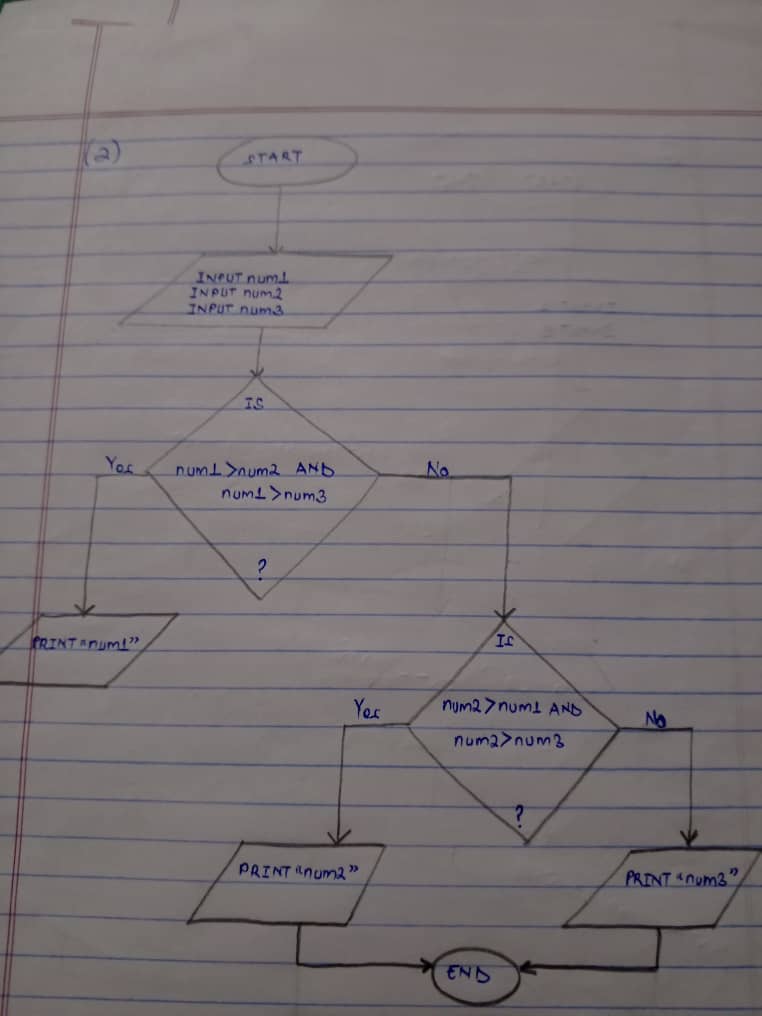 (2)
START
INPUT num1
INPUT num2
INPUT num3
IS
Yes
num1 > num2 AND
No
num1 > num3
?
PRINT "num1"
Is
Yes
num2 > num1 AND
No
num2 > num3
?
PRINT "num2"
PRINT "num3"
END